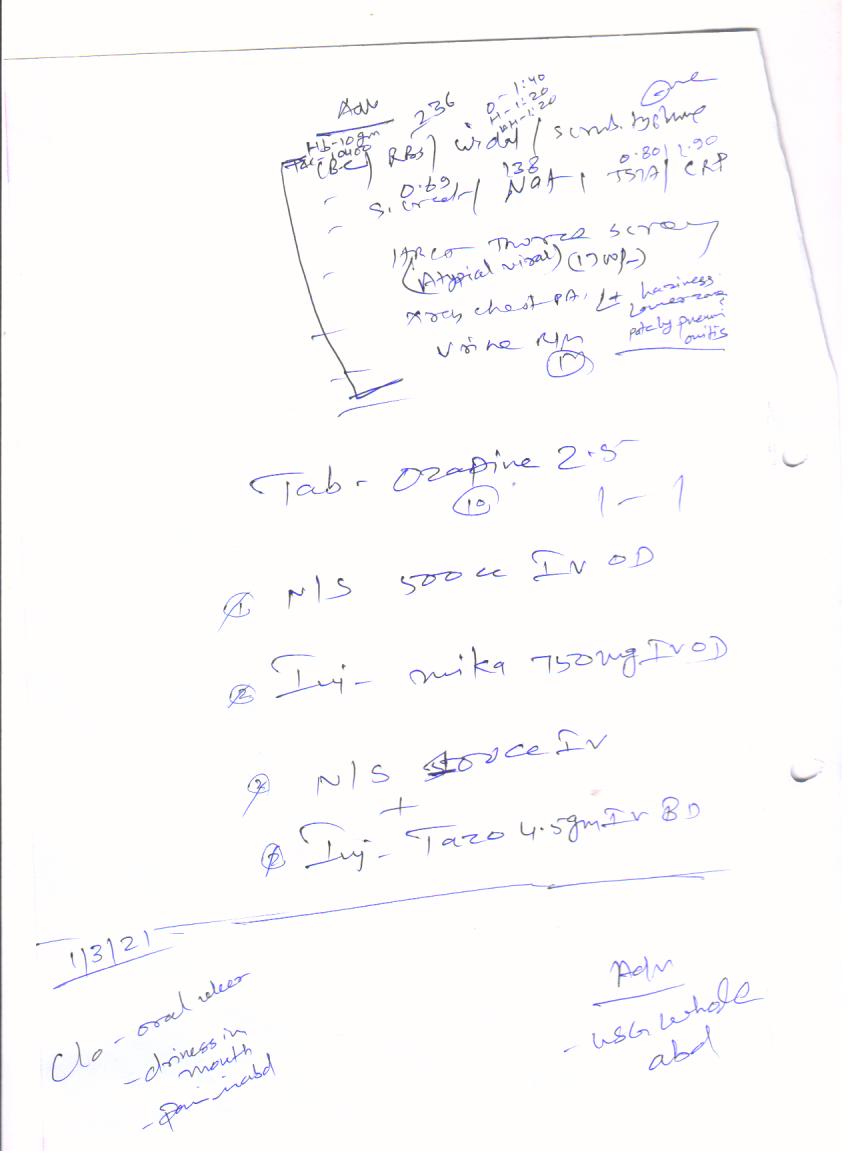 Adv
236
O - 1:40
H - 1:20
AH - 1:20
Hb-10gm
TLC-10400
CBC/ RBS/ widal/ scrub typhus
-ve
0.69 138 0.80/ 1.90
S. creat/ Na+, / CRP
HRCT Thorax screen
(Atypical viral) (1700/-)
xray chest PA. Lt haziness
lower zone
patchy pneum
onitis
Urine R/M
Tab - Ozapine 2.5
10 1 - 1
1 N/S 500cc IV OD
2 Inj - mika 750mg IV OD
3 N/S 100cc IV
+
Inj - Tazo 4.5gm IV BD
1/3/21
C/o - oral ulcer
- driness in
mouth
- pain in abd
Adv
- USG whole
abd